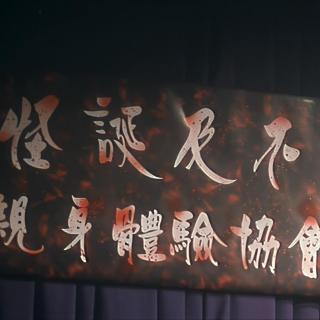 怪談及不
親身體驗協會